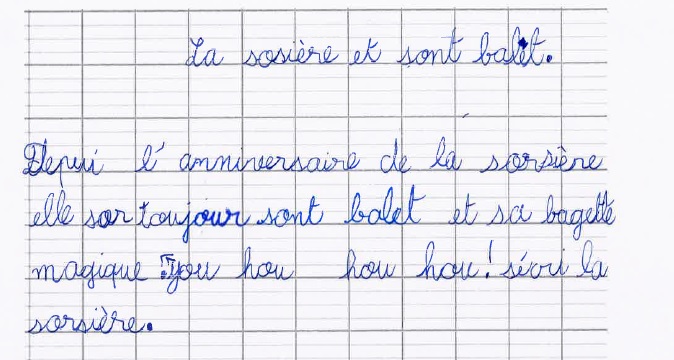 La sosière et sont balet.
Depui l'anniversaire de la sorsière
elle sor toujour sont balet et sa bagette
magique : you hou hou hou! sécri la
sorsière.